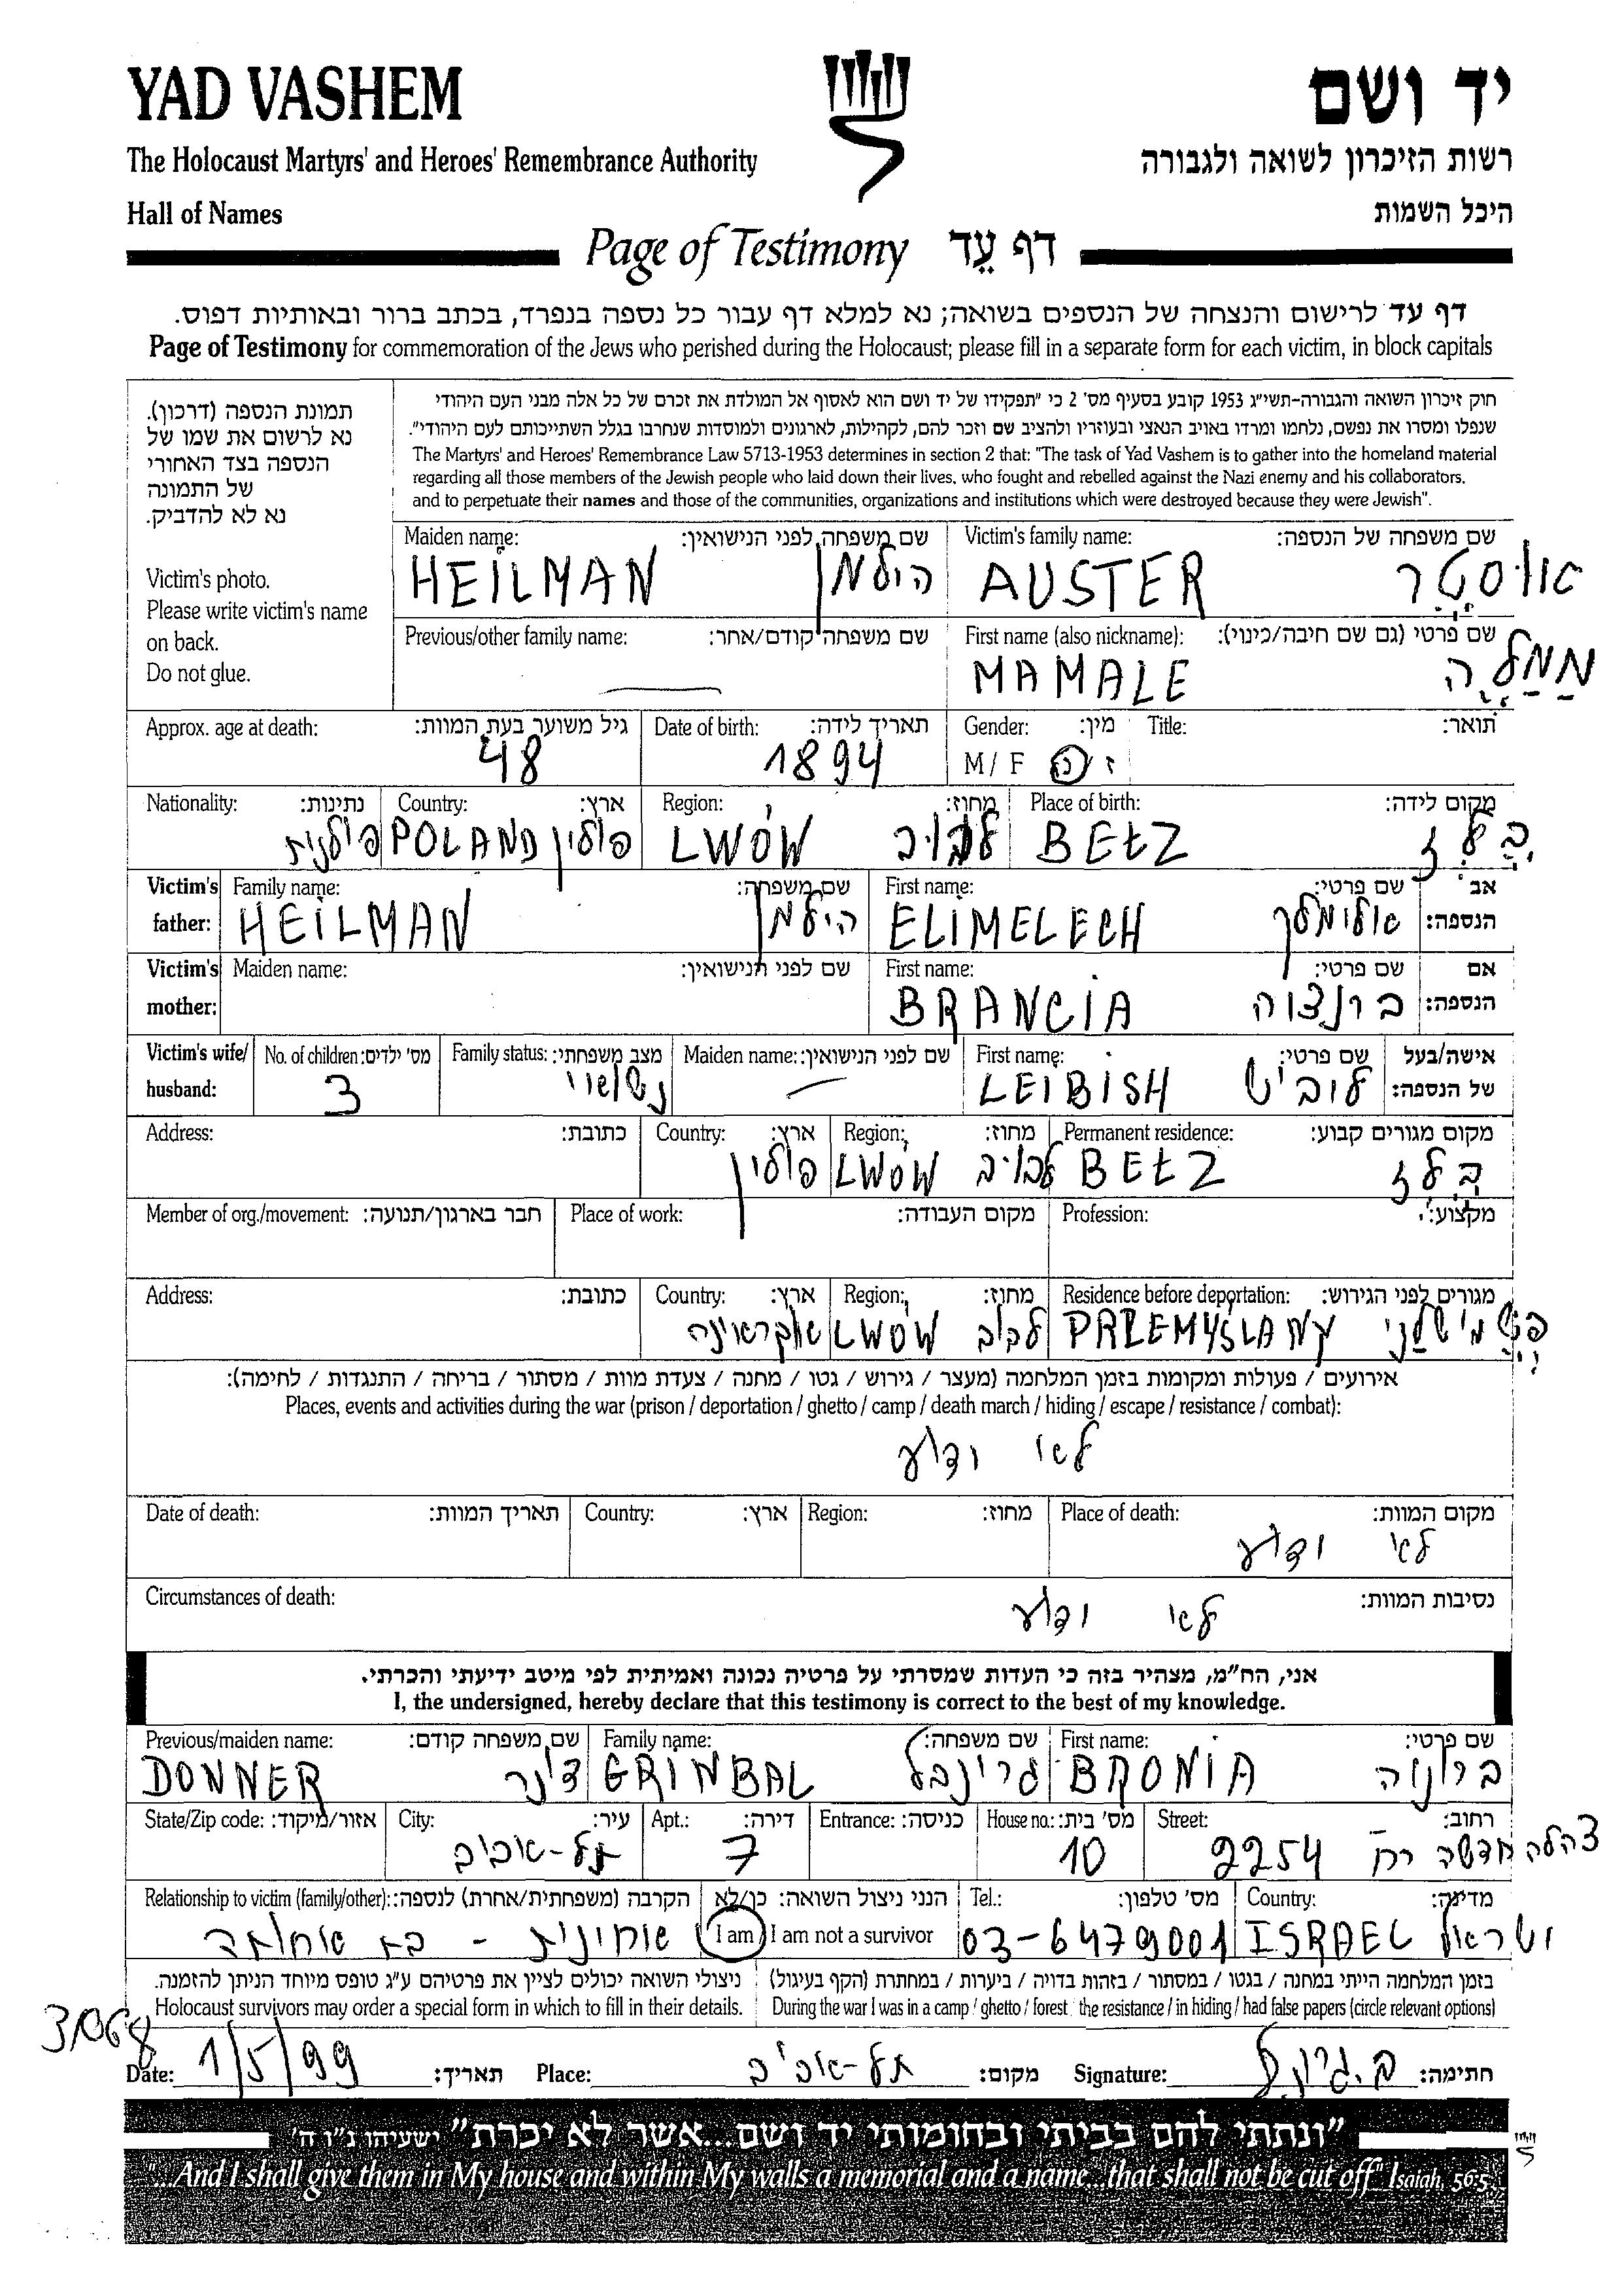 YAD VASHEM
יד ושם
The Holocaust Martyrs' and Heroes' Remembrance Authority
רשות הזיכרון לשואה ולגבורה
Hall of Names
היכל השמות
Page of Testimony דף עֵד
דף עד לרישום והנצחה של הנספים בשואה; נא למלא דף עבור כל נספה בנפרד, בכתב ברור ובאותיות דפוס.
Page of Testimony for commemoration of the Jews who perished during the Holocaust; please fill in a separate form for each victim, in block capitals
תמונת הנספה (דרכון).
נא לרשום את שמו של
הנספה בצד האחורי
של התמונה
נא לא להדביק.
Victim's photo.
Please write victim's name
on back.
Do not glue.
חוק זיכרון השואה והגבורה-תשי"ג 1953 קובע בסעיף מס' 2 כי "תפקידו של יד ושם הוא לאסוף אל המולדת את זכרם של כל אלה מבני העם היהודי
שנפלו ומסרו את נפשם, נלחמו ומרדו באויב הנאצי ובעוזריו ולהציב שם וזכר להם, לקהילות, לארגונים ולמוסדות שנחרבו בגלל השתייכותם לעם היהודי".
The Martyrs' and Heroes' Remembrance Law 5713-1953 determines in section 2 that: "The task of Yad Vashem is to gather into the homeland material
regarding all those members of the Jewish people who laid down their lives, who fought and rebelled against the Nazi enemy and his collaborators,
and to perpetuate their names and those of the communities, organizations and institutions which were destroyed because they were Jewish".
Maiden name: שם משפחה לפני הנישואין: Victim's family name: שם משפחה של הנספה:
HEILMAN הילמן AUSTER אוסטר
Previous/other family name: שם משפחה קודם/אחר: First name (also nickname): שם פרטי (גם שם חיבה/כינוי):
MAMALE מַמַלֶה
Approx. age at death: גיל משוער בעת המוות: Date of birth: תאריך לידה: Gender: מין: Title: תואר:
48 1894 M / F ז / נ
Nationality: נתינות: Country: ארץ: Region: מחוז: Place of birth: מקום לידה:
פולנית POLAND פולין LWÓW לבוב BEŁZ בֶּלְז
Victim's father: Family name: שם משפחה: First name: שם פרטי: אב הנספה:
HEILMAN הילמן ELIMELECH אלימלך
Victim's mother: Maiden name: שם לפני הנישואין: First name: שם פרטי: אם הנספה:
BRANCIA ברנציה
Victim's wife/ husband: No. of children: מס' ילדים: Family status: מצב משפחתי: Maiden name: שם לפני הנישואין: First name: שם פרטי: אישה/בעל של הנספה:
3 נשואי — LEIBISH לייביש
Address: כתובת: Country: ארץ: Region: מחוז: Permanent residence: מקום מגורים קבוע:
פולין LWÓW לבוב BEŁZ בֶּלְז
Member of org./movement: חבר בארגון/תנועה: Place of work: מקום העבודה: Profession: מקצוע:
Address: כתובת: Country: ארץ: Region: מחוז: Residence before deportation: מגורים לפני הגירוש:
אוקראינה LWÓW לבוב PRZEMYŚLANY פְּשֶמישלַני
אירועים / פעולות ומקומות בזמן המלחמה (מעצר / גירוש / גטו / מחנה / צעדת מוות / מסתור / בריחה / התנגדות / לחימה):
Places, events and activities during the war (prison / deportation / ghetto / camp / death march / hiding / escape / resistance / combat):
לא ידוע
Date of death: תאריך המוות: Country: ארץ: Region: מחוז: Place of death: מקום המוות:
לא ידוע
Circumstances of death: נסיבות המוות:
לא ידוע
אני, הח"מ, מצהיר בזה כי העדות שמסרתי על פרטיה נכונה ואמיתית לפי מיטב ידיעתי והכרתי.
I, the undersigned, hereby declare that this testimony is correct to the best of my knowledge.
Previous/maiden name: שם משפחה קודם: Family name: שם משפחה: First name: שם פרטי:
DONNER דונר GRINBAL גרינבל BRONIA ברוניה
State/Zip code: אזור/מיקוד: City: עיר: Apt.: דירה: Entrance: כניסה: House no.: מס' בית: Street: רחוב:
תל-אביב 7 10 2254 רח' צהלה חדשה
Relationship to victim (family/other): הקרבה (משפחתית/אחרת) לנספה: הנני ניצול השואה: כן/לא Tel.: מס' טלפון: Country: מדינה:
אחינית - בת אחותה I am / I am not a survivor 03-6479001 ISRAEL ישראל
ניצולי השואה יכולים לציין את פרטיהם ע"ג טופס מיוחד הניתן להזמנה. בזמן המלחמה הייתי במחנה / בגטו / במסתור / בזהות בדויה / ביערות / במחתרת (הקף בעיגול)
Holocaust survivors may order a special form in which to fill in their details. During the war I was in a camp / ghetto / forest / the resistance / in hiding / had false papers (circle relevant options)
Date: 1/5/99 תאריך: Place: תל-אביב מקום: Signature: חתימה:
"ונתתי להם בביתי ובחומותי יד ושם...אשר לא יכרת" ישעיהו נ"ו ה'
And I shall give them in My house and within My walls a memorial and a name...that shall not be cut off" Isaiah, 56:5